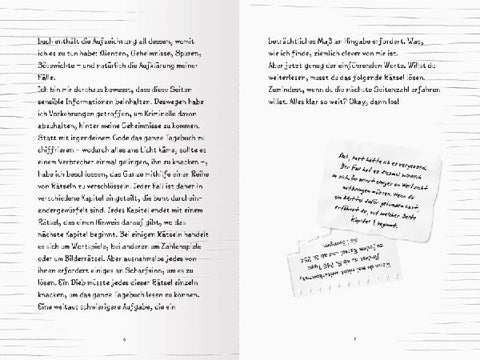 buch enthält die Aufzeichnung all dessen, womit
ich es zu tun habe: Klienten, Geheimnisse, Spuren,
Bösewichte – und natürlich die Aufklärung meiner
Fälle.
Ich bin mir durchaus bewusst, dass diese Seiten
sensible Informationen beinhalten. Deswegen habe
ich Vorkehrungen getroffen, um Kriminelle davon
abzuhalten, hinter meine Geheimnisse zu kommen.
Statt mit irgendeinem Code das ganze Tagebuch zu
chiffrieren – wodurch alles ans Licht käme, sollte es
einem Verbrecher einmal gelingen, ihn zu knacken –,
habe ich beschlossen, das Ganze mithilfe einer Reihe
von Rätseln zu verschlüsseln. Jeder Fall ist daher in
verschiedene Kapitel eingeteilt, die bunt durch ein-
andergewürfelt sind. Jedes Kapitel endet mit einem
Rätsel, das einen Hinweis darauf gibt, wo das
nächste Kapitel beginnt. Bei einigen Rätseln handelt
es sich um Wortspiele, bei anderen um Zahlenspiele
oder um Bilderrätsel. Aber ausnahmslos jedes von
ihnen erfordert einiges an Scharfsinn, um es zu
lösen. Ein Dieb müsste jedes dieser Rätsel einzeln
knacken, um das ganze Tagebuch lesen zu können.
Eine weitaus schwierigere Aufgabe, die ein
6
beträchtliches Maß an Hingabe erfordert. Was,
wie ich finde, ziemlich clever von mir ist.
Aber jetzt genug der einführenden Worte. Willst du
weiterlesen, musst du das folgende Rätsel lösen.
Zumindest, wenn du die nächste Seitenzahl erfahren
willst. Alles klar so weit? Okay, dann los!
7